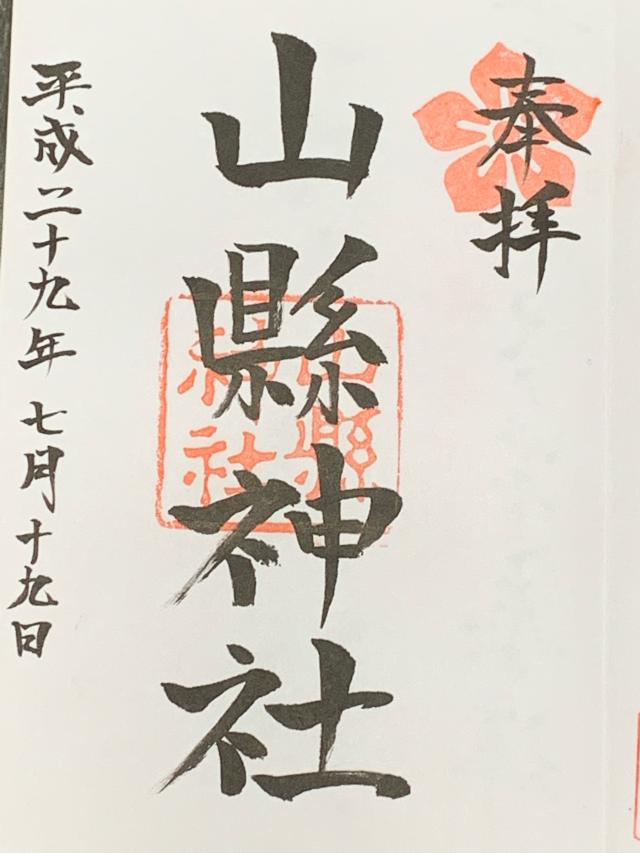 奉拝
山縣神社
山縣神社
平成二十九年七月十九日